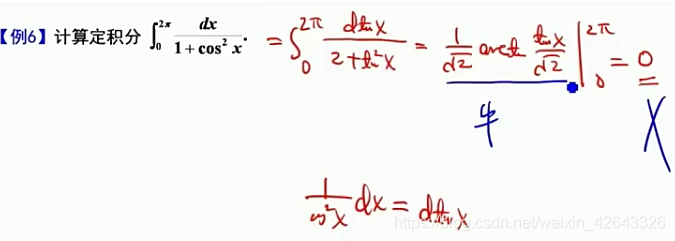 【例6】计算定积分 ∫₀^{2π} dx/(1+cos²x). = ∫₀^{2π} dtanx/(2+tan²x) = 1/√2 arctan tanx/√2 |₀^{2π} = 0
X
1/cos²x dx = dtanx
https://blog.csdn.net/weixin_42643326